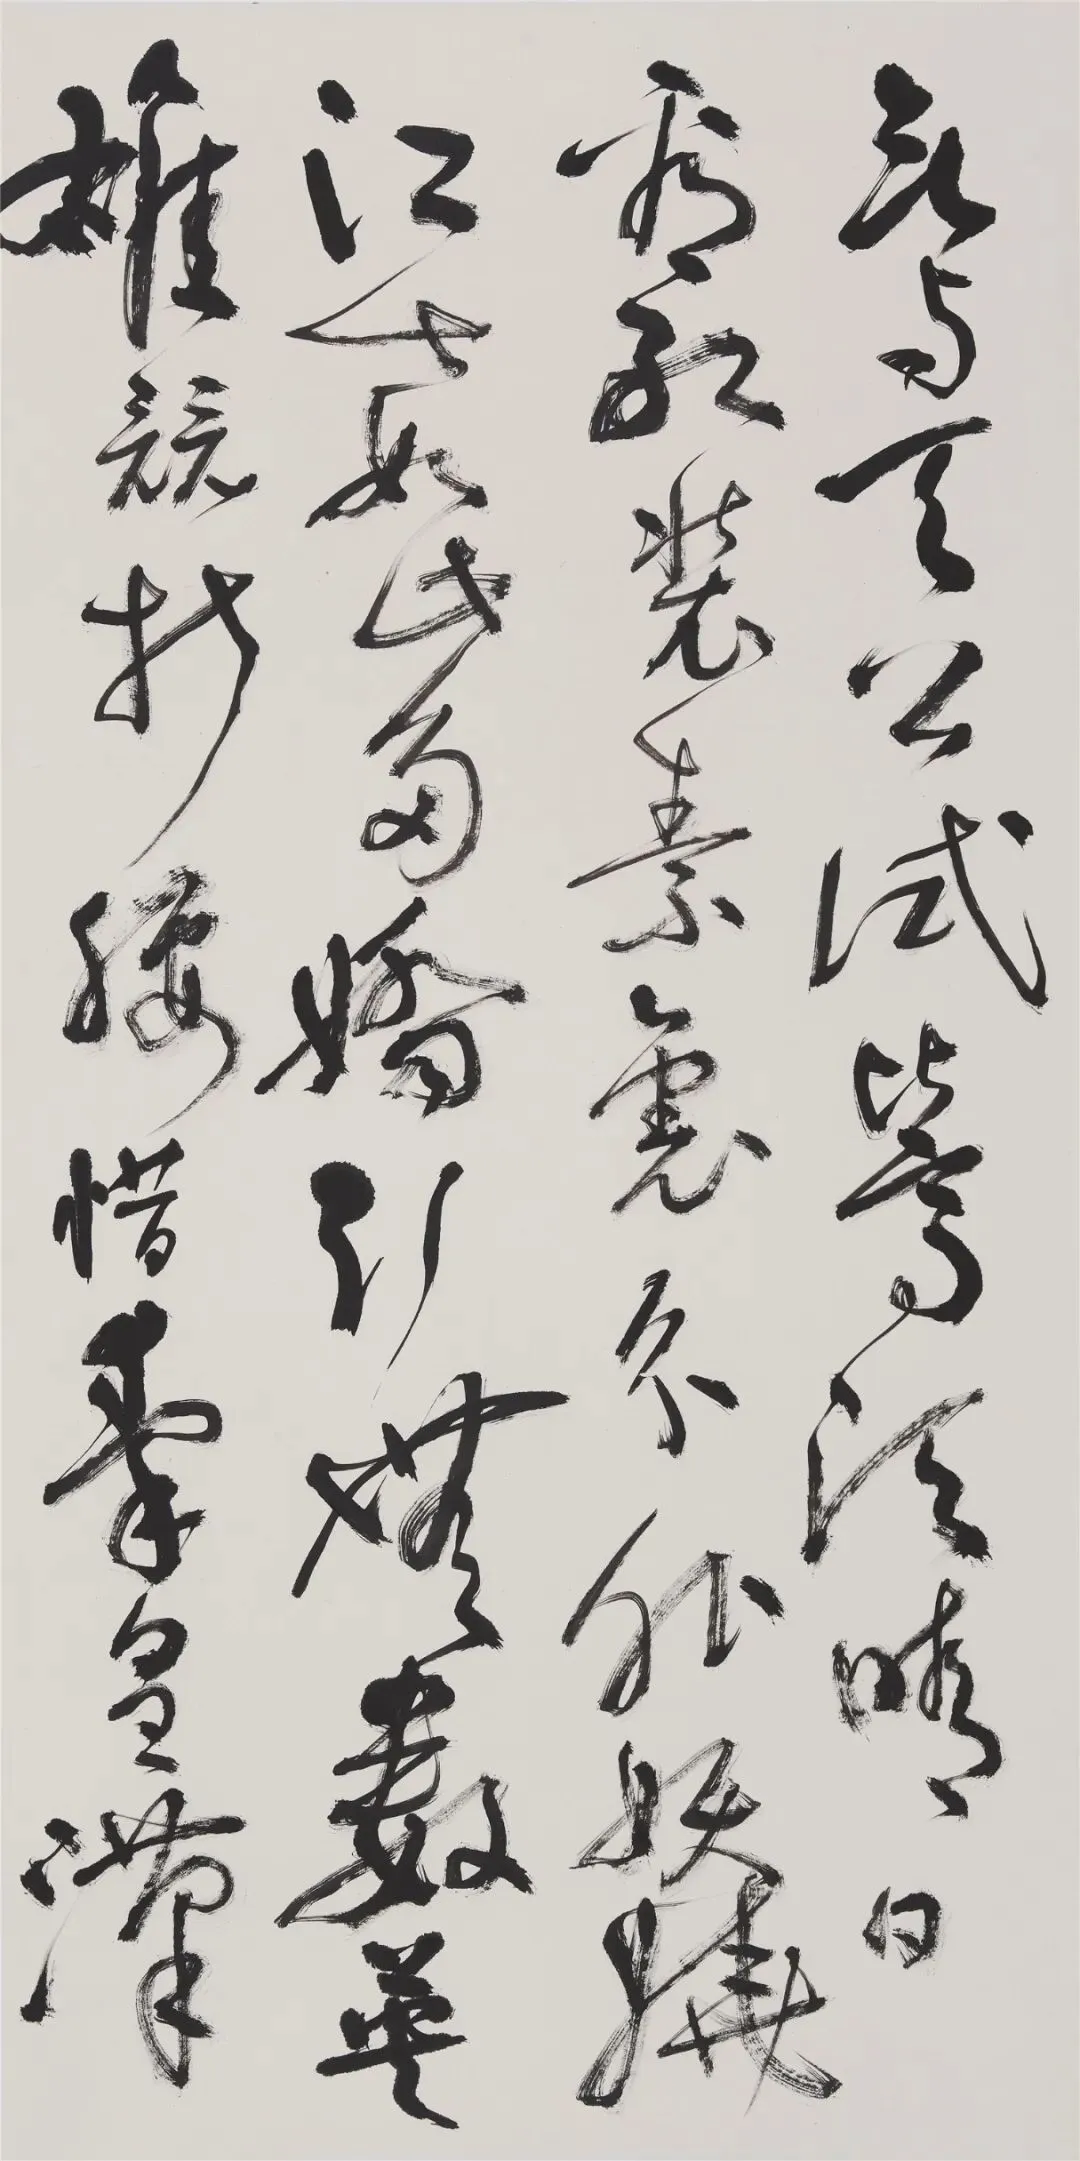 欲与天公试比高须晴日
看红装素裹分外妖娆
江山如此多娇引无数英
雄竞折腰惜秦皇汉